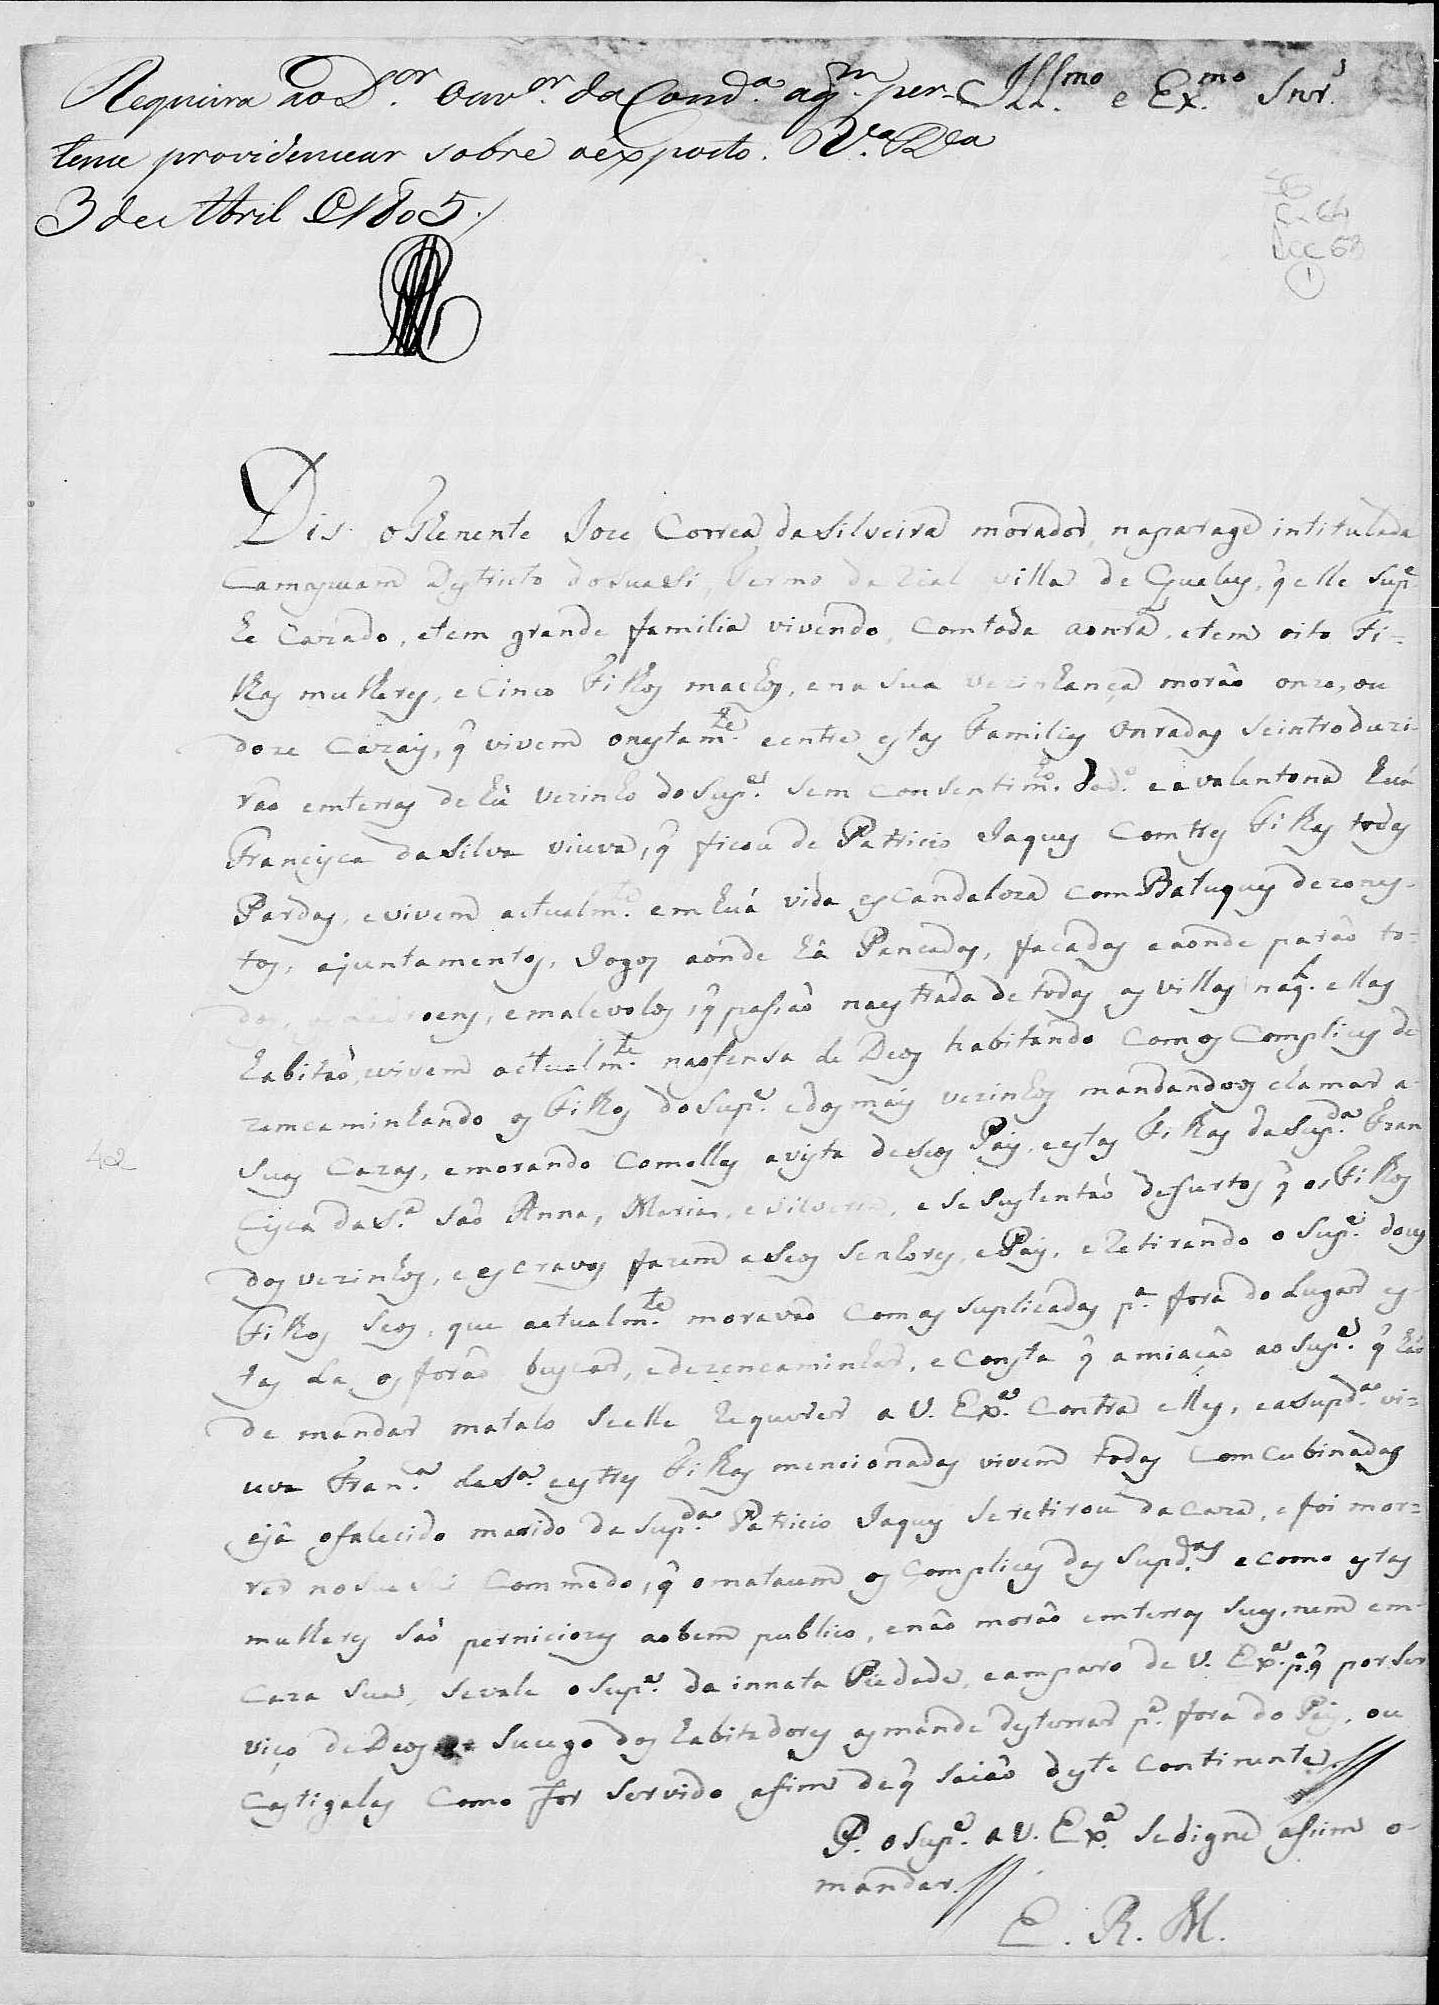 Requeira ao D.or Ouv.or da Com.ca aq.m per-
tence providenciar sobre o exposto. V.a R.ca
3 de Abril de 1805.
Ill.mo e Ex.mo Snr.
Cx 64
Doc 53
1
Dis o Thenente Joze Correa da Silveira morador na paragē intitulada
Camapuam Destricto do Suassi termo da Rial villa de Queluz, q̃ elle Sup.e
he Cazado, e tem grande familia vivendo, Com toda a onra, e tem oito Fi-
lhas mulheres, e Cinco Filhos machos, e na Sua vezinhança morão onze, ou
doze Cazais, q̃ vivem onestam.te e entre estas Familias Onradas Se introduzi-
rão em terras de hũ Vezinho do Sup.e Sem Consentim.to do d.o e a valentona huá
Francisca da Silva Viuva, q̃ ficou de Patricio Jaques Com tres Filhas todas
Pardas, e vivem actualm.te em huá vida escandaloza com Batuques dezones-
tos, ajuntamentos, Jogos aonde há Pancadas, facadas e aonde parão to-
dos, e malevolos, q̃ passão na estrada de todas as villas na q.l ellas
habitão, e vivem actualm.te na ofensa de Deos habitando Com os Complices de
zemcaminhando os Filhos do Sup.e e dos mais vezinhos mandandoos chamar a
Suas Cazas, e morando Com elles a vista de Seos Pais, e estas Filhas da Sup.da Fran
cisca da S.a São Anna, Maria, e Silveria, e Se Sustentão de furtos q̃ os Filhos
dos vezinhos, e escravos fazem a Seos Senhores, e Pais, e Retirando o Sup.e dous
Filhos Seos, que actualm.te moravão Com as Suplicadas p.a fora do Lugar es-
tas La os forão buscar, e dezencaminhar, e Consta q̃ amiação ao Sup.e q̃ hão
de mandar matalo Se elle Requerer a V. Ex.a Contra ellas, e a Sup.da vi-
uva Fran.ca da S.a e as tres Filhas mencionadas vivem todas Comcubinadas
e já o falecido marido da Sup.da Patricio Jaques Se retirou da Caza, e foi mor-
rer no Suassi Com medo, q̃ o matacem os Complices das Sup.das e como estas
mulheres São perniciozas ao bem publico, e não morão em terras Suas, nem em
Caza Sua, Se vale o Sup.e da innata Piedade, e amparo de V. Ex.a p.a q̃ por Ser
viço de Deos e Sucego dos habitadores as mande desterrar p.a fora do Pais, ou
Castigalas Como for Servido afim de q̃ Saião deste Continente.
P. o Sup.e a V. Ex.a Se digne assim o
mandar.
E. R. M.
42